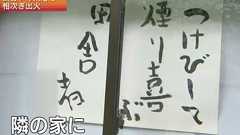 相次ぎ出火
つけびして
煙り喜ぶ
田舎者
隣の家に